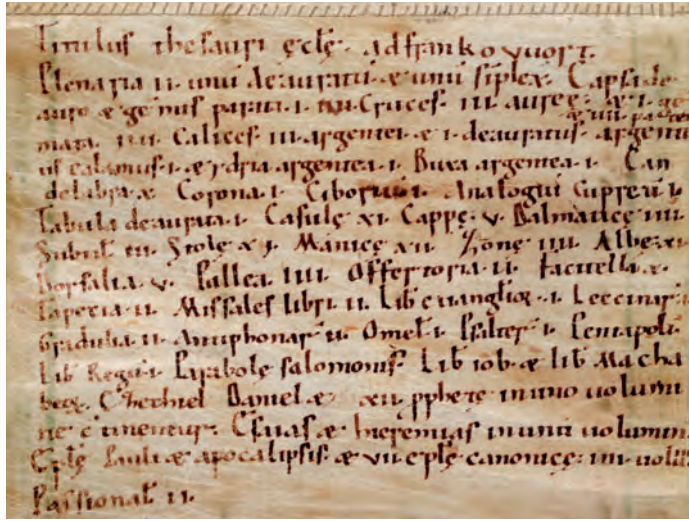 Titulus thesauri ęclę. adfrankovuort.
Plenaria .ii. unū deauratū & unū siplex. Capsa de
auro & gemis parata .i. Cruces .iii. aureę. & .i. ge
mata. Calices .iii. argentei & .i. deauratus. argente
us calamus .i. & ydria argentea .i. Buxa argentea .i. Can
delabra .x. Corona .i. Ciboriū .i. Analogiū cupreū .i.
Tabula deaurata .i. Casulę .xi. Cappę .v. Dalmaticę .iiii.
Subtil. .iii. Stolę .xi. Manicę .xii. Zonę .iiii. Albę .xi.
Dorsalia .v. Pallea .iiii. Offertoria .ii. Facitella .x.
Tapecia .ii. Missales libri .ii. Lib euanglioꝝ .i. Leccinar .i.
Gradulia .ii. Antiphonar .ii. Omel. .i. Psalter .i. Pentapoli.
Lib Regū .i. Parabolę salomonis. Lib iob. & lib Macha
beoꝝ. Ezechiel Daniel & .xii. pphetę in uno uolumi
ne c̄tinentur. Esaias & hieremias in unū uolumin
Eplę Pauli & apocalipsis & .vii. eplę canonicę .iii. uolū
Passional .ii.